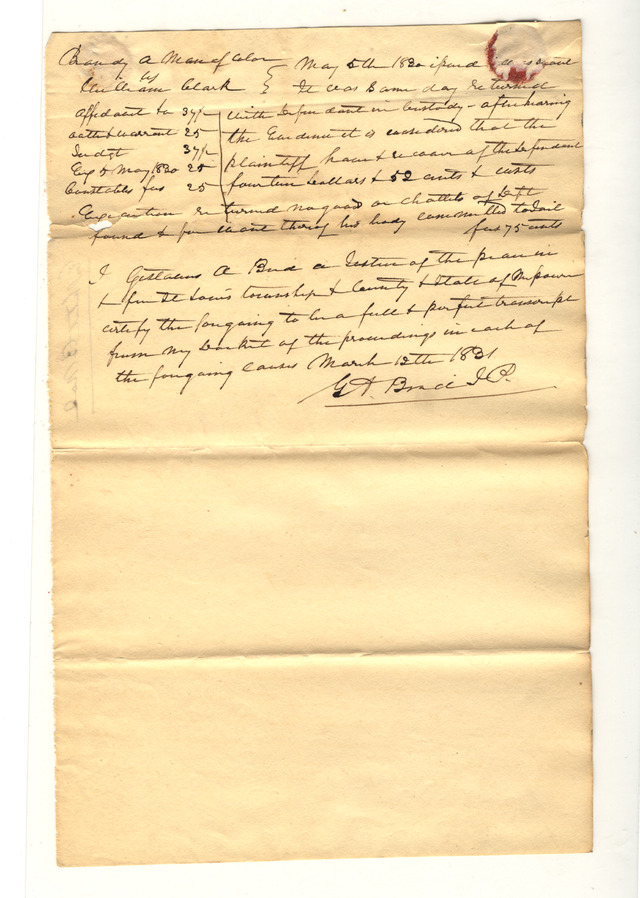 Brandy A Man of Color } May 5th 1830 issued
vs
William Clark } It was Same day returned
affidavit &c 37½ with Defendant in Custody - after hearing
oath & warrant 25 the Evidence it is considered that the
Judgt 37½ plaintiff have & recover of the Defendant
Exe 5 May 1830 25 fourteen dollars & 52 cents & costs
Constables fees 25
Execution returned no goods or chattles of Deft
found & for want thereof his body committed to Jail
fees 75 cents
I Gustavus A Bird a Justice of the peace in
& for St Louis township & County & State of Missouri
certify the forgoing to be a full & perfect transcript
from my Docket of the proceedings in each of
the forgoing causes March 12th 1831
G A Bird J.P.